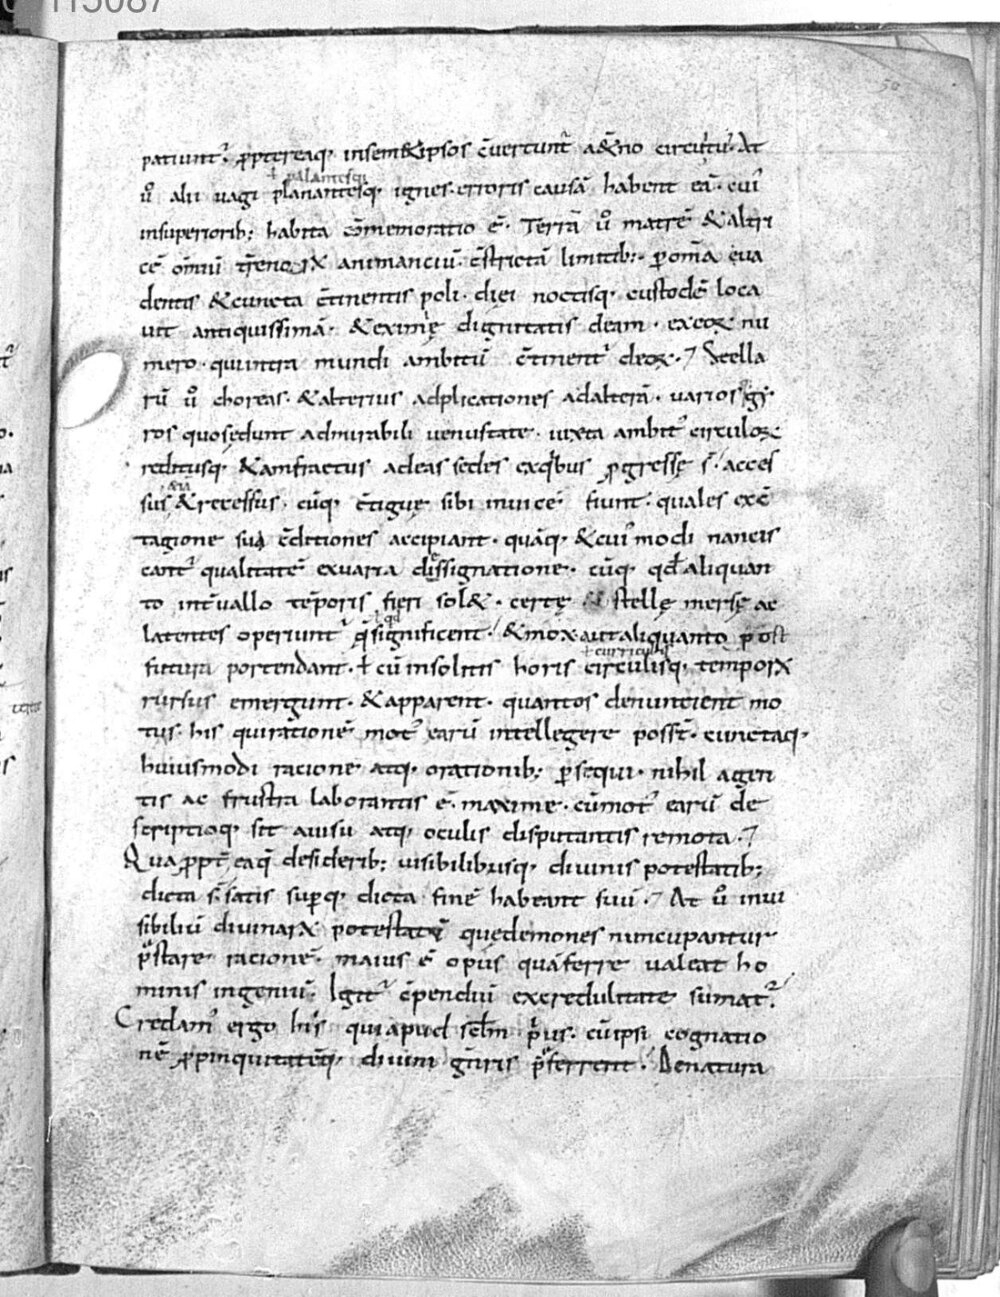 115087
50
patiunt᷑. ꝓptereaq; insem&ipsos c̄uertunt᷑ a&̄no circuitu. At
ł palantesq;
ũ alii uagi planantesq; ignes. erroris causā habent eā. cui᷒
insuperiorib; habita cōmemoratio ē. Terrā ũ matrē &altri
cē om̄iū tr̄enoꝝ animanciū. c̄strictā limitib;. ꝑom̄a eua
dentis &cuncta c̄tinentis poli. diei noctisq; custodē loca
uit antiquissimā. &eximię dignitatis deam. exeoꝝ nu
mero. quiintra mundi ambitū c̄tinent᷑ deoꝝ. Stella
rū ũ choreas. &alterius adplicationes adalterā. uarios gy
ros quosedunt admirabili uenustate. iuxta ambit᷒ circuloꝝ
reditusq; &amfractus adeas sedes exqͥbus ꝓgressę s̄. acces
sus &recessus. cūq; c̄tiguę sibi inuicē fiunt. quales exc̄
tagione sua c̄ditiones accipiant. quāq; &cui᷒modi nancis
cant᷑ qualitatē exuaria dissignatione. cūq; qd̄ aliquan
to int̄uallo tēporis fieri sol&. certę stellę mersę ac
latentes operiunt᷑ qͥ significent. &mox aut aliquanto ꝑ ost
ł curriculis
futura portendant. ł cū insolitis horis circulisq; temporꝝ
rursus emergunt. &apparent. quantos denuntient mo
tus. his quirationē mot᷒ earū intellegere poss̄t. cunctaq;
huiusmodi racione atq; orationib; ꝑsequi. nihil agen
tis ac frustra laborantis ē. maxime. cūmot᷒ earū de
scriptioq; sit auisu atq; oculis disputantis remota.
Quaꝓpt̄ eaq̄ desiderib; uisibilibusq; diuinis potestatib;
dicta s̄ satis suꝑq; dicta finē habeant suū. At ũ inui
sibiliū diuinarꝝ potestatū quędemones nuncupantur
p̄stare racionē. maius ē opus quāferre ualeat ho
minis ingeniū. Igit᷑ c̄pendiū excredulitate sumat᷑.
Credam᷒ ergo his qui apud sclm̄ pͥus. cūipsi cognatio
nē ꝓpinquitatēq; diuini gn̄ris p̄ferrent. Denatura